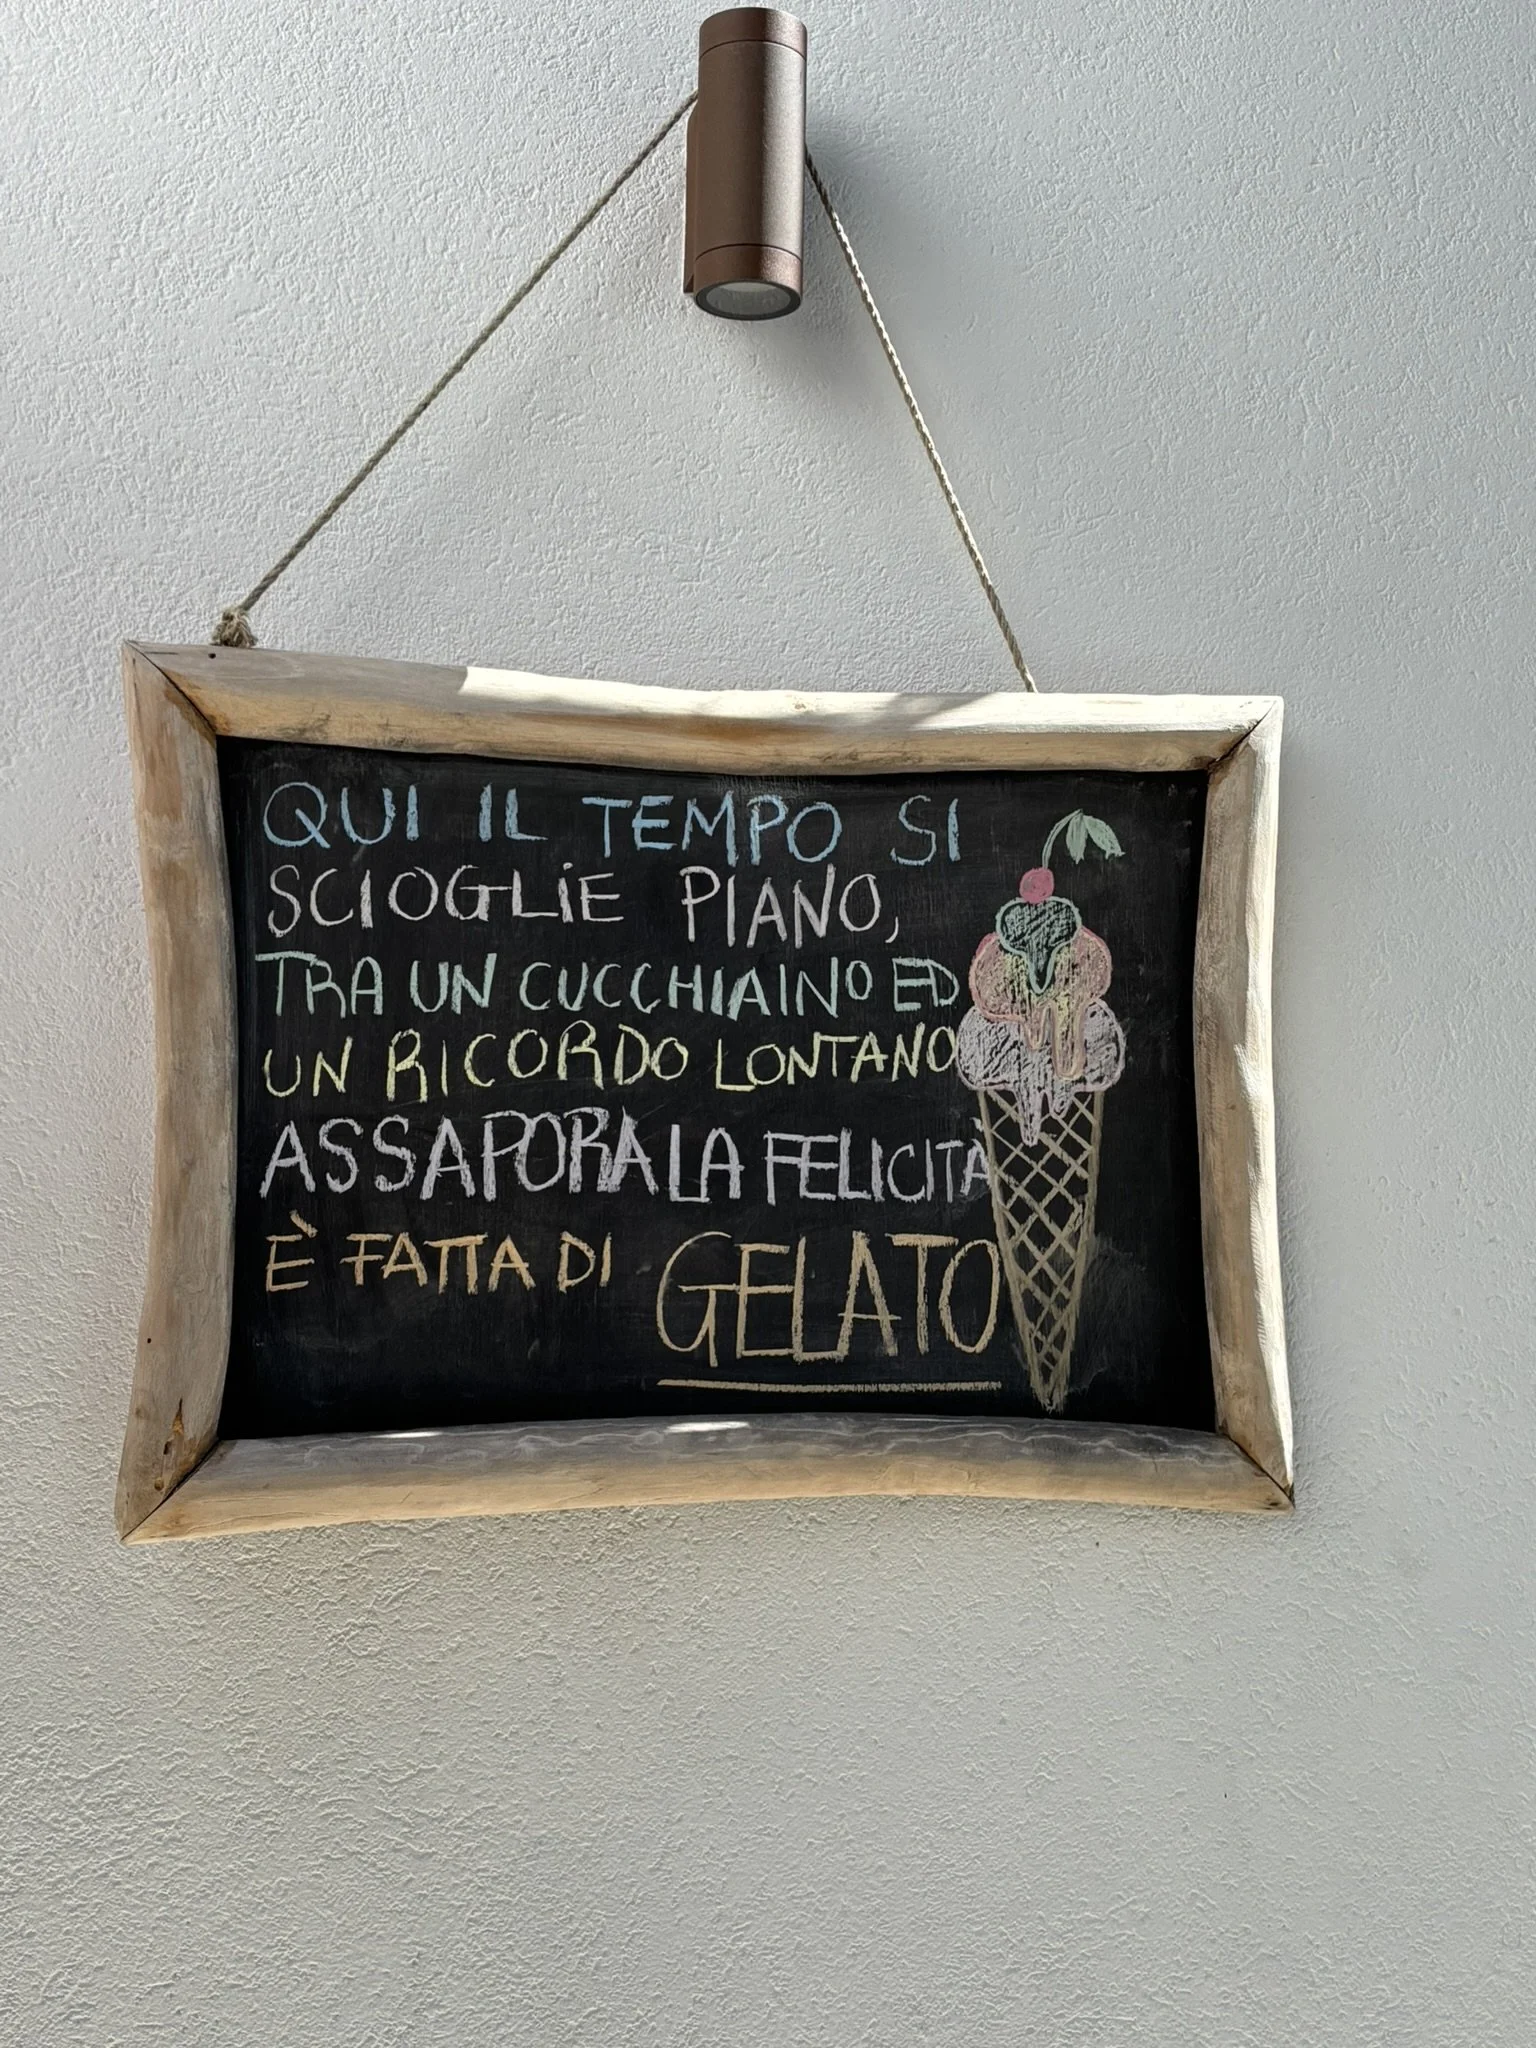 QUI IL TEMPO SI
SCIOGLIE PIANO,
TRA UN CUCCHIAINO ED
UN RICORDO LONTANO
ASSAPORA LA FELICITÀ
È FATTA DI GELATO